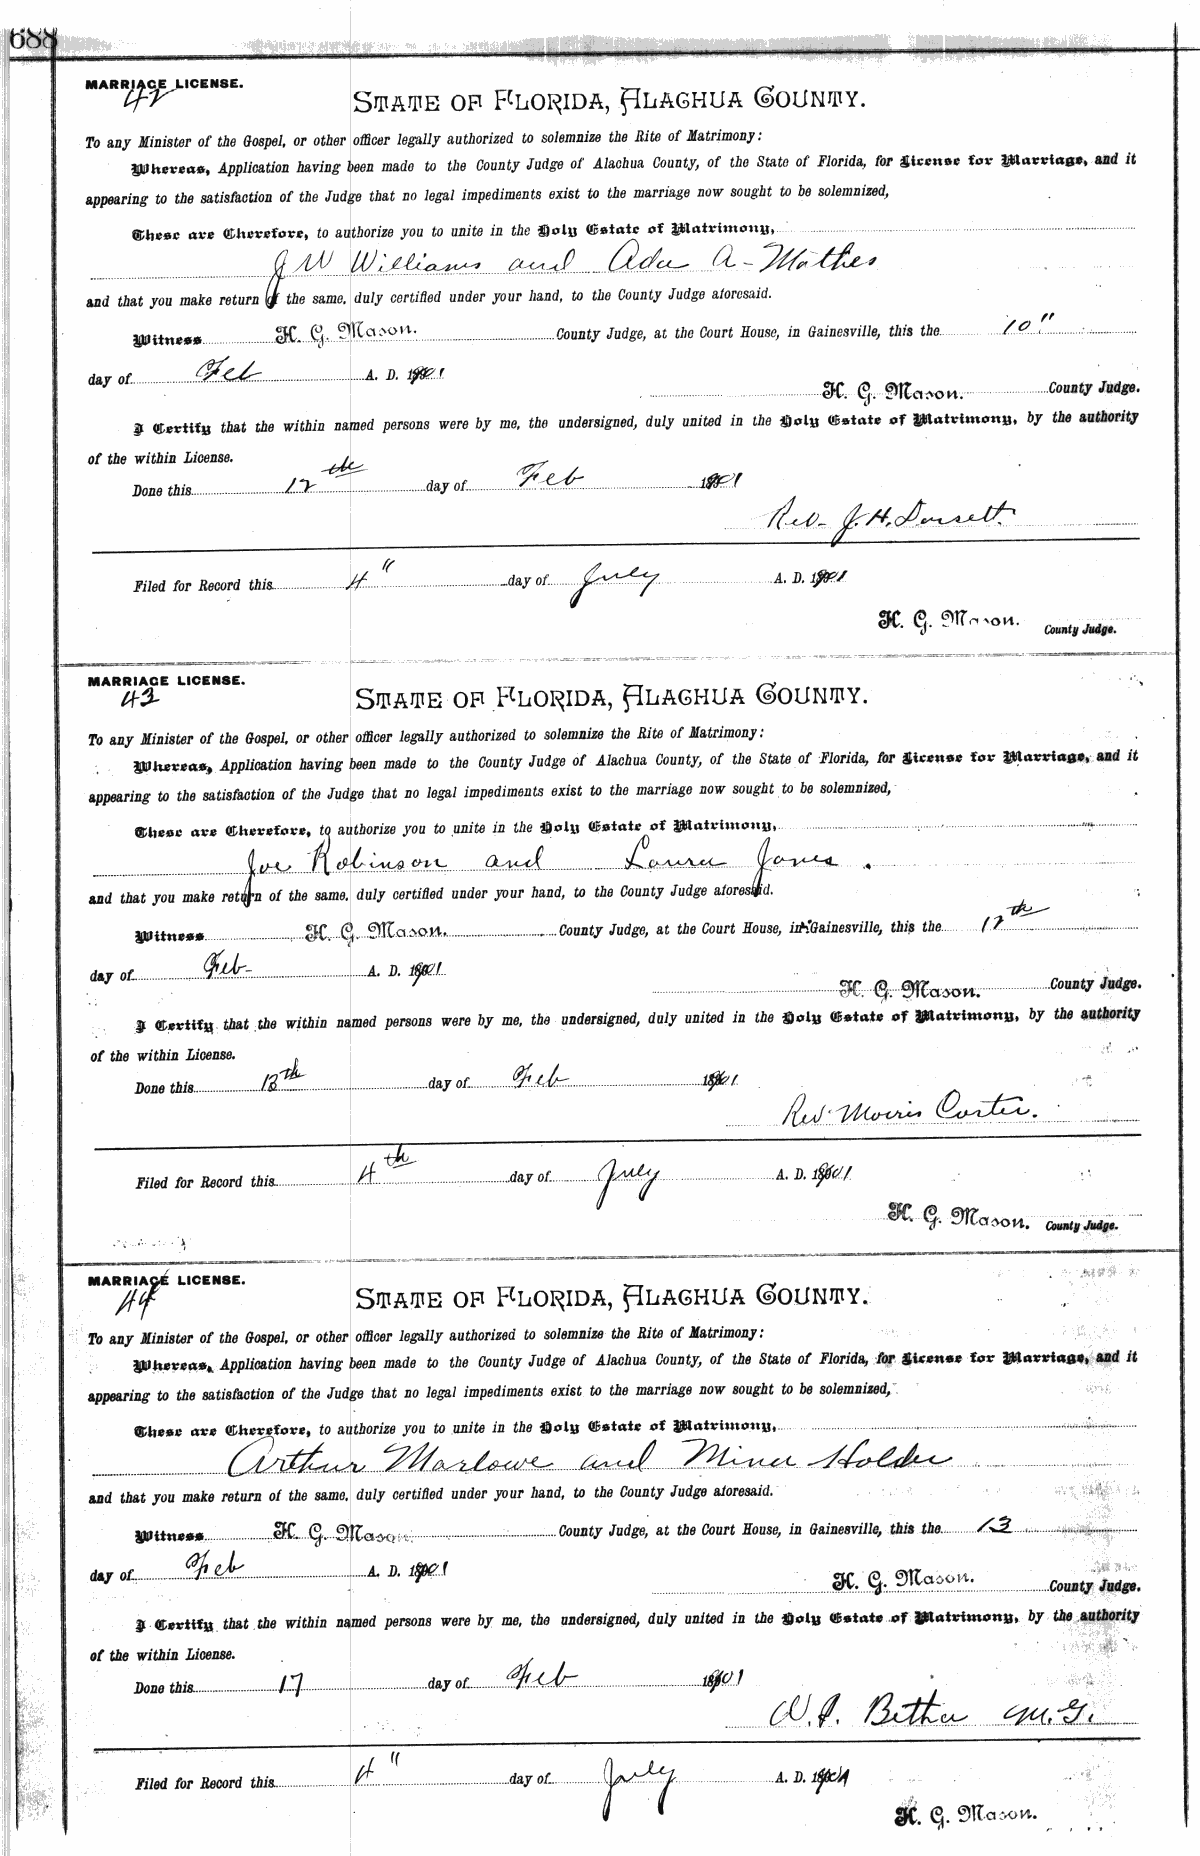 688
MARRIAGE LICENSE.
42
STATE OF FLORIDA, ALACHUA COUNTY.
To any Minister of the Gospel, or other officer legally authorized to solemnize the Rite of Matrimony:
Whereas, Application having been made to the County Judge of Alachua County, of the State of Florida, for License for Marriage, and it
appearing to the satisfaction of the Judge that no legal impediments exist to the marriage now sought to be solemnized,
These are Therefore, to authorize you to unite in the Holy Estate of Matrimony,
J W Williams and Ada A - Mathes
and that you make return of the same, duly certified under your hand, to the County Judge aforesaid.
Witness H. G. Mason. County Judge, at the Court House, in Gainesville, this the 10"
day of Feb A. D. 1901
H. G. Mason. County Judge.
I Certify that the within named persons were by me, the undersigned, duly united in the Holy Estate of Matrimony, by the authority
of the within License.
Done this 12th day of Feb 1901
Rev. J. H. Dorsett.
Filed for Record this 4" day of July A. D. 1901
H. G. Mason. County Judge.
MARRIAGE LICENSE.
43
STATE OF FLORIDA, ALACHUA COUNTY.
To any Minister of the Gospel, or other officer legally authorized to solemnize the Rite of Matrimony:
Whereas, Application having been made to the County Judge of Alachua County, of the State of Florida, for License for Marriage, and it
appearing to the satisfaction of the Judge that no legal impediments exist to the marriage now sought to be solemnized,
These are Therefore, to authorize you to unite in the Holy Estate of Matrimony,
Joe Robinson and Laura Jones .
and that you make return of the same, duly certified under your hand, to the County Judge aforesaid.
Witness H. G. Mason. County Judge, at the Court House, in Gainesville, this the 12th
day of Feb - A. D. 1901
H. G. Mason. County Judge.
I Certify that the within named persons were by me, the undersigned, duly united in the Holy Estate of Matrimony, by the authority
of the within License.
Done this 13th day of Feb 1901
Rev. Morris Carter.
Filed for Record this 4th day of July A. D. 1901
H. G. Mason. County Judge.
MARRIAGE LICENSE.
44
STATE OF FLORIDA, ALACHUA COUNTY.
To any Minister of the Gospel, or other officer legally authorized to solemnize the Rite of Matrimony:
Whereas, Application having been made to the County Judge of Alachua County, of the State of Florida, for License for Marriage, and it
appearing to the satisfaction of the Judge that no legal impediments exist to the marriage now sought to be solemnized,
These are Therefore, to authorize you to unite in the Holy Estate of Matrimony,
Arthur Marlowe and Mina Holder
and that you make return of the same, duly certified under your hand, to the County Judge aforesaid.
Witness H. G. Mason. County Judge, at the Court House, in Gainesville, this the 13
day of Feb A. D. 1901
H. G. Mason. County Judge.
I Certify that the within named persons were by me, the undersigned, duly united in the Holy Estate of Matrimony, by the authority
of the within License.
Done this 17 day of Feb 1901
Bethea M. G.
Filed for Record this 4" day of July A. D. 1901
H. G. Mason.